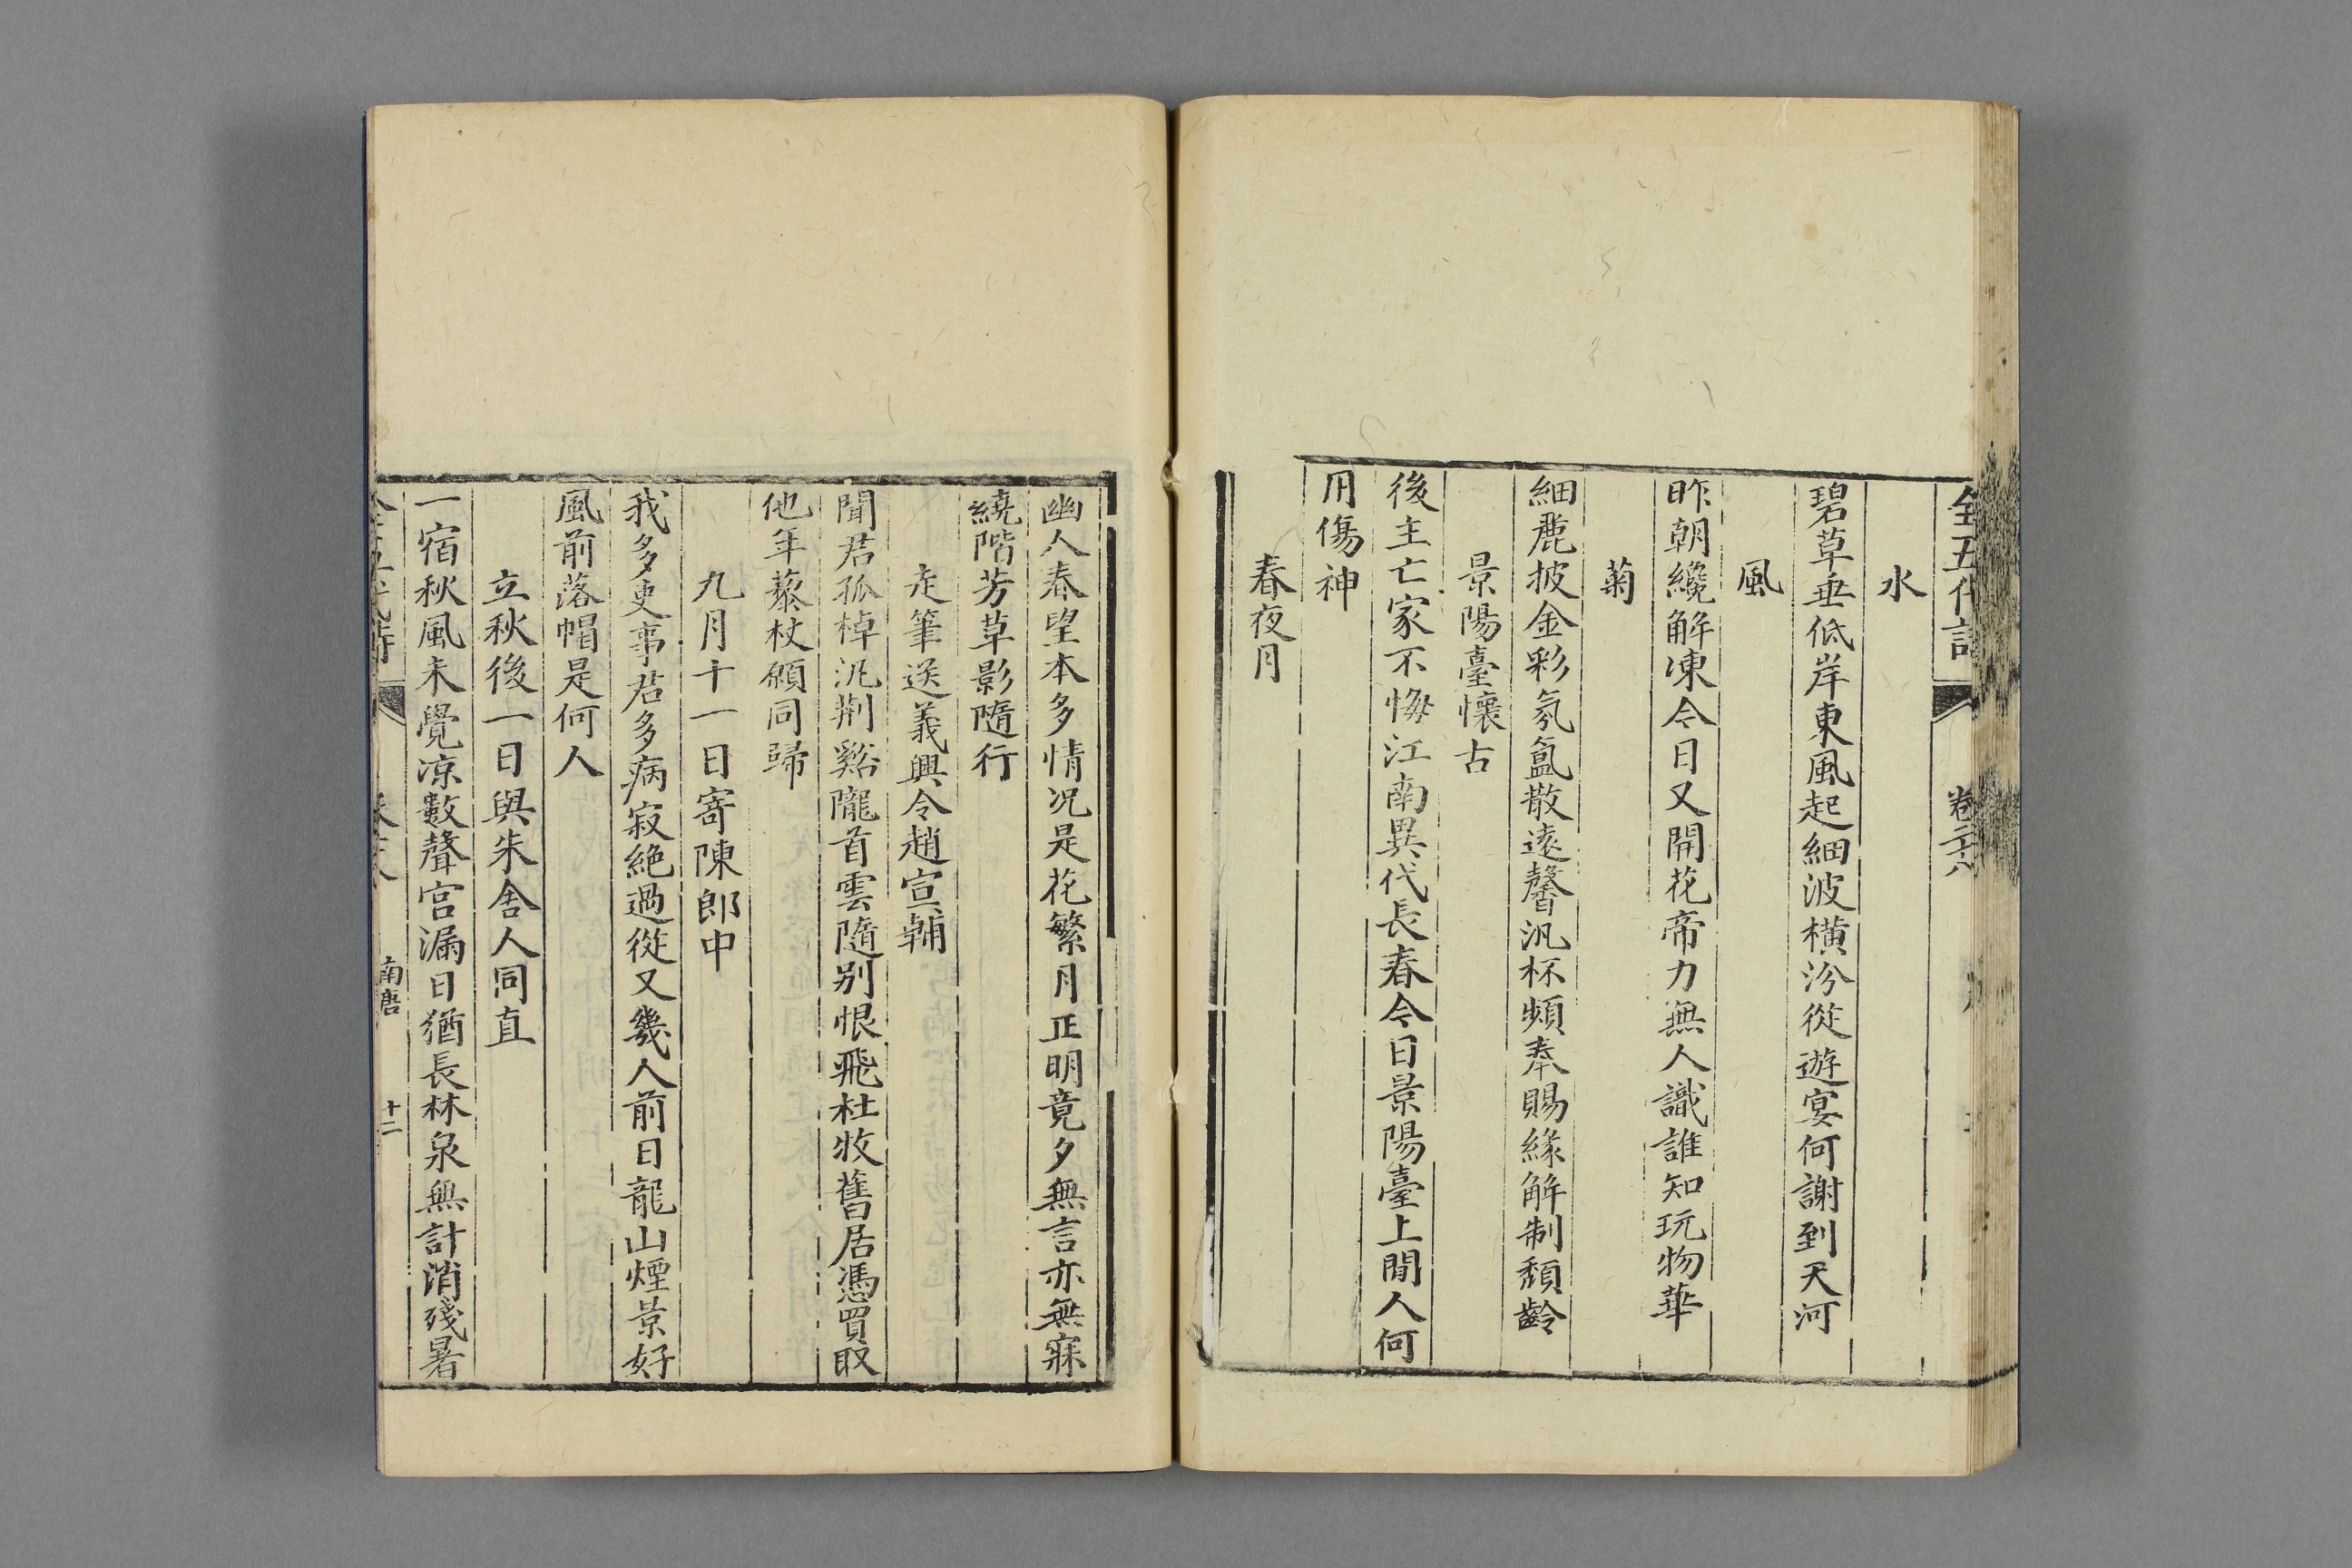 全五代詩 卷二十八
水
碧草垂低岸東風起細波橫汾從遊宴何謝到天河
風
昨朝纔解凍今日又開花帝力無人識誰知玩物華
菊
細麗披金彩氛氳散遠馨汎杯頻奉賜緣解制頹齡
景陽臺懷古
後主亡家不悔江南異代長春今日景陽臺上閒人何
用傷神
春夜月
幽人春望本多情況是花繁月正明竟夕無言亦無寐
繞階芳草影隨行
走筆送義興令趙宣輔
聞君孤棹汎荆谿隴首雲隨别恨飛杜牧舊居馮買取
他年藜杖願同歸
九月十一日寄陳郎中
我多吏事君多病寂絶過從又幾人前日龍山煙景好
風前落帽是何人
立秋後一日與朱舍人同直
一宿秋風未覺凉數聲宮漏日猶長林泉無計消殘暑
南唐 十二